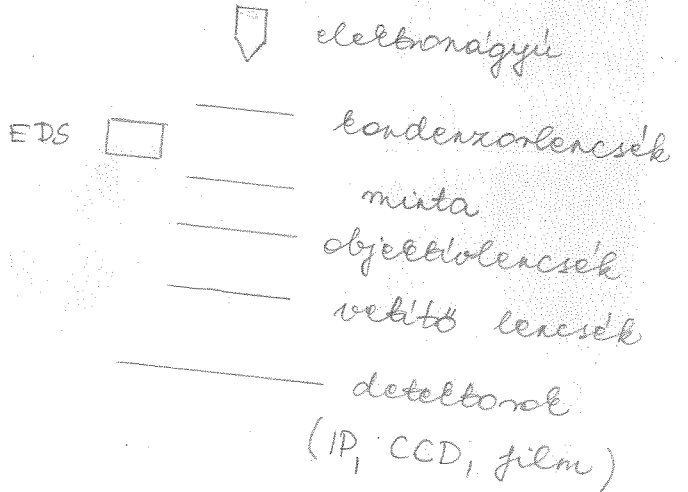 elektronágyú
EDS
kondenzorlencsék
minta
objektívlencsék
vetítő lencsék
detektorok
(IP, CCD, film)